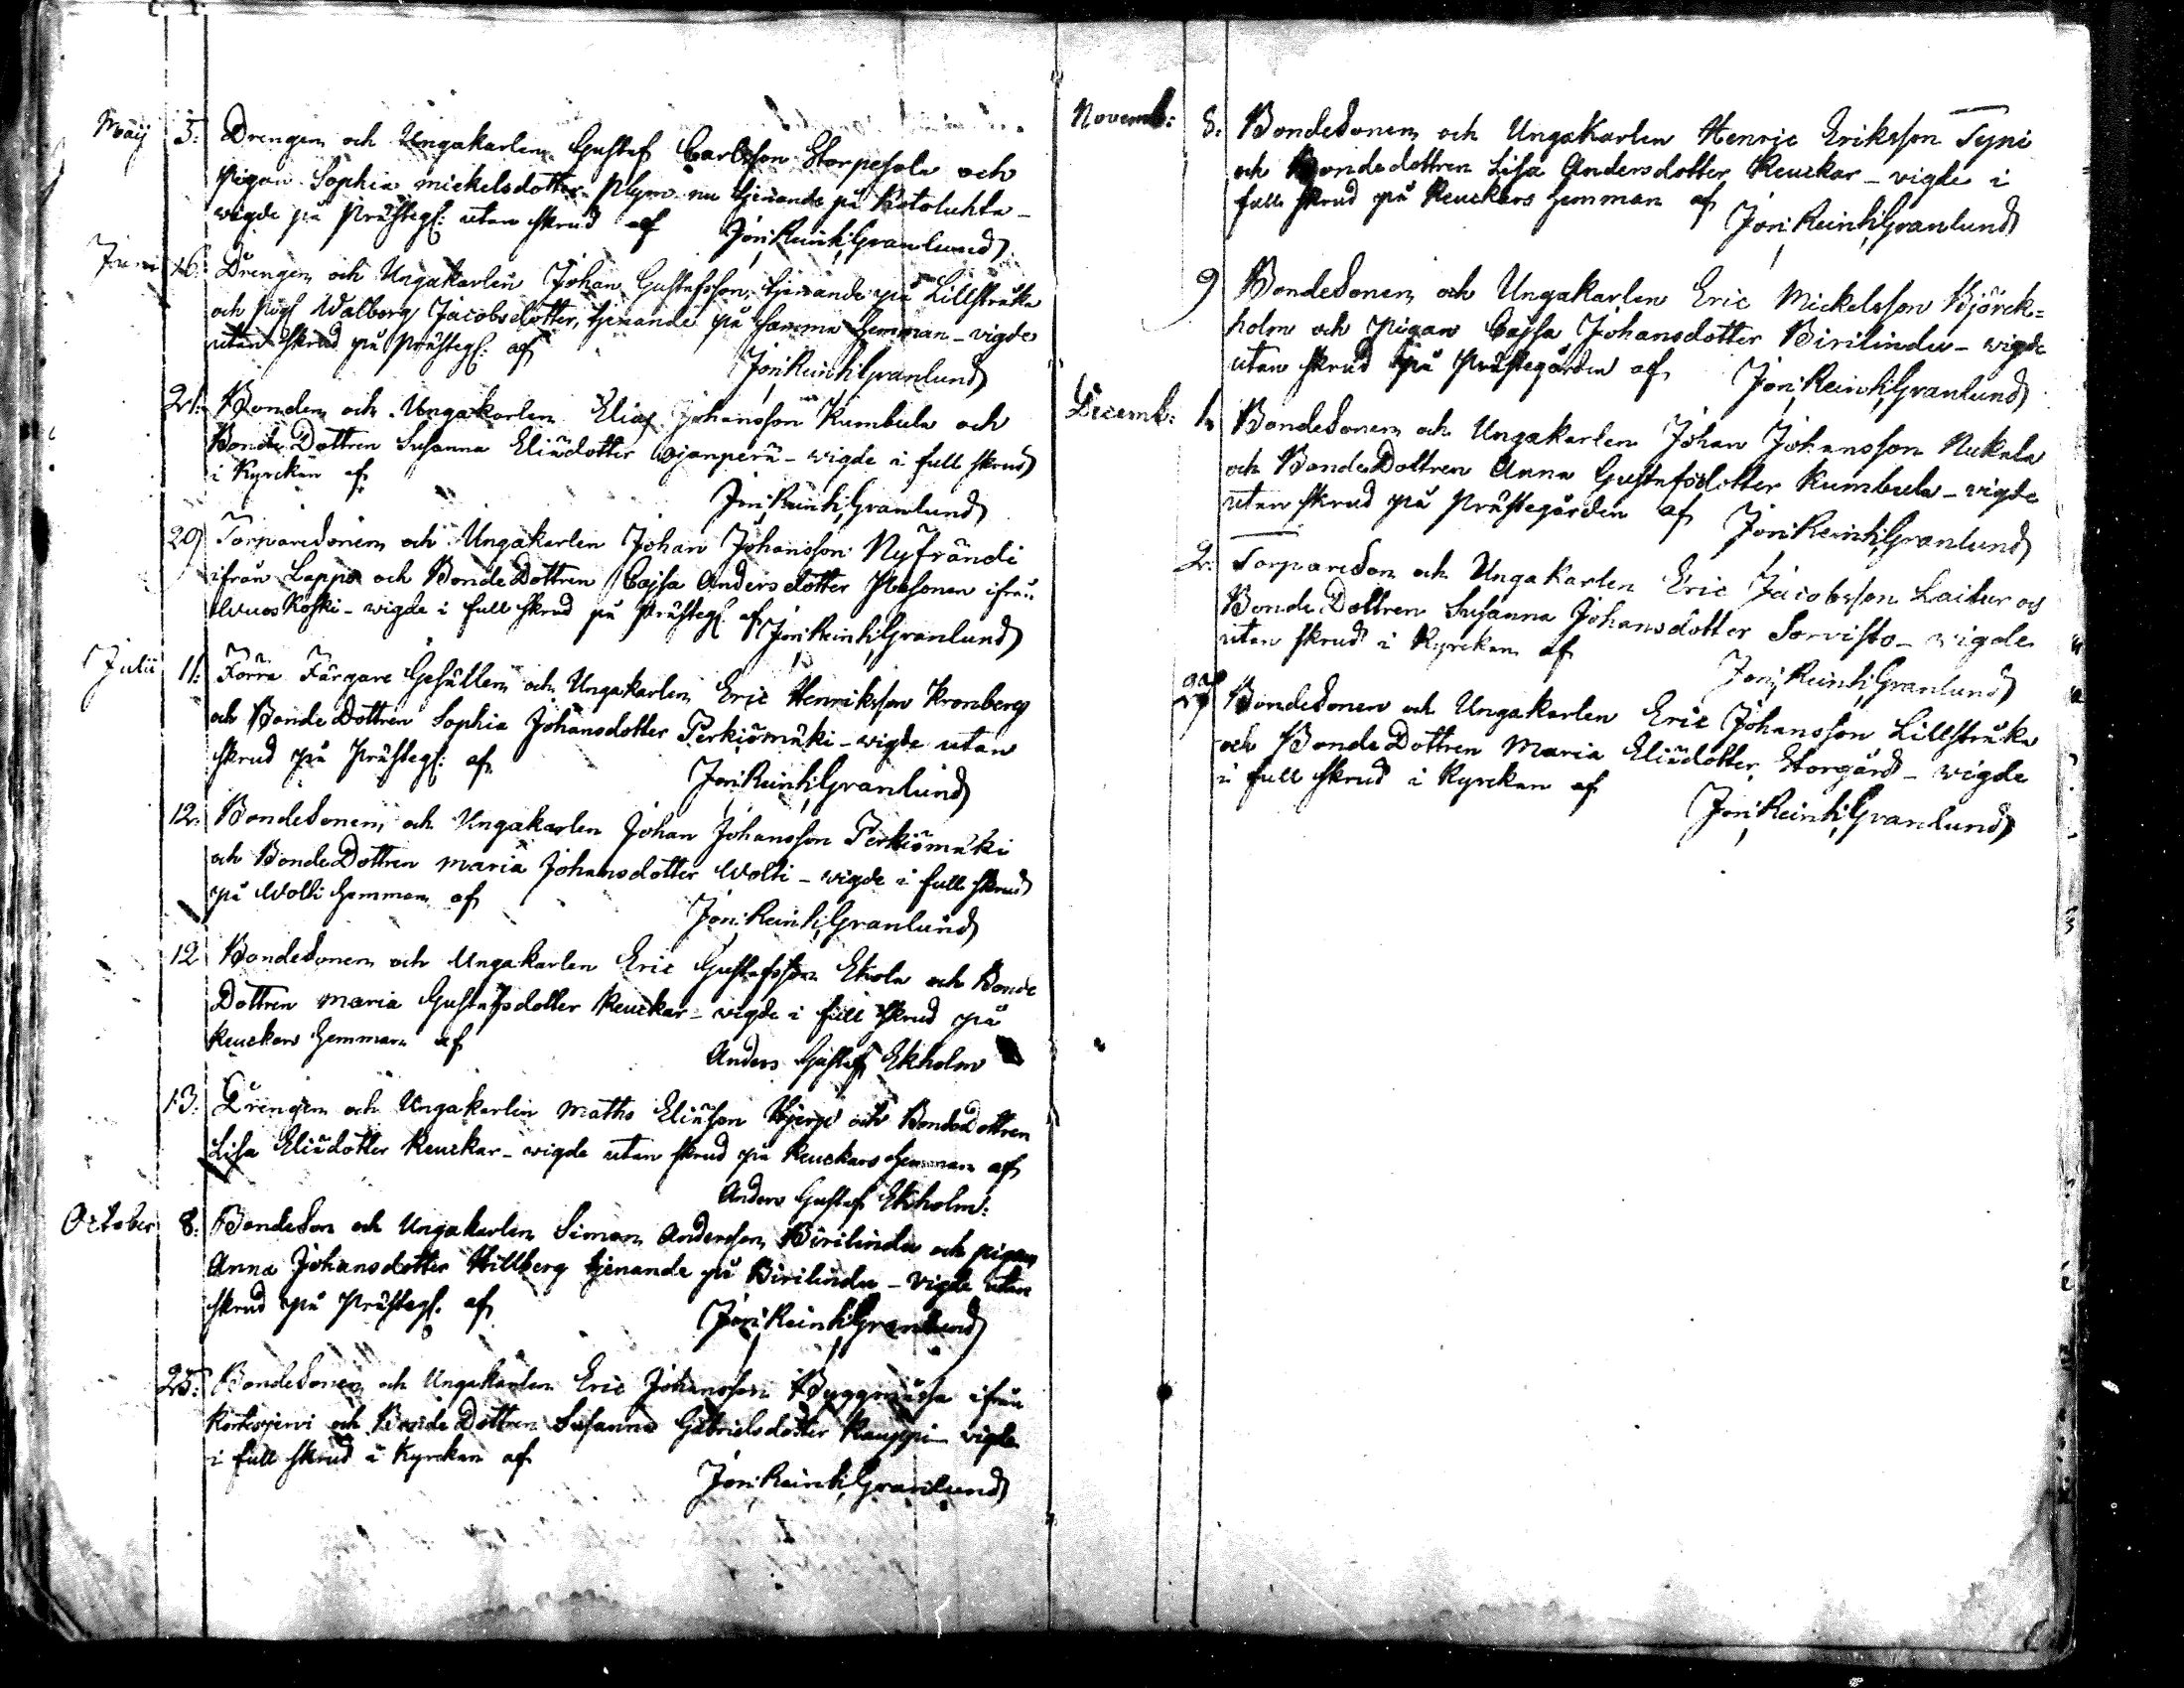 Maij 5: Drengen och Ungakarlen Gustaf Carlsson Storpesola och
Pigan Sophia Mickelsdotter nu tjenande på Katoluhta –
wigde på Prästeg: utan skrud af Joh: Reinh: Granlund
Junii 16: Drengen och Ungakarlen Johan Gustafsson, tjenande på Lillstråka
och Pig: Walborg Jacobsdotter, tjenande på samma Hemman – vigde
utan skrud på Prästeg: af
Joh: Reinh: Granlund
21: Bonden och Ungakarlen Elias Johansson Kumbula och
Bonde Dottren Susanna Eliædotter – vigde i full skrud
i Kyrckan af
Joh: Reinh: Granlund
29 TorpareSonen och Ungakarlen Johan Johansson Nyfrändi
ifrån Lappo och BondeDottren Cajsa Andersdotter ifrån
Wuoskoski – vigde i full skrud på Prästeg: af Joh: Reinh: Granlund
Julii 11: Förra Färgare Gesällen och Ungakarlen Eric Henriksson Kronberg
och BondeDottren Sophia Johansdotter Perkiömäki – wigde utan
skrud på Prästeg: af
Joh: Reinh: Granlund
12: BondeSonen och Ungakarlen Johan Johansson Perkiömäki
och BondeDottren Maria Johansdotter Wolti – vigde i full skrud
på Wolti Hemman af
Joh: Reinh: Granlund
12 BondeSonen och Ungakarlen Eric Gustafsson Ekola och Bonde
Dottren Maria Gustafsdotter Keuckar – vigde i full skrud på
Keuckars Hemman af
Anders Gustaf Ekholm
13: Drengen och Ungakarlen Maths Eliæson och BondeDottren
Lisa Eliædotter Keuckar – vigde utan skrud på Keuckars Hemman af
Anders Gustaf Ekholm:
October 8: BondeSon och Ungakarlen Simon Andersson Birilinda och pigan
Anna Johansdotter Hillberg tjenande på Birilinda – vigde utan
skrud på Prästeg: af
Joh: Reinh: Granlund
25: BondeSonen och Ungakarlen Eric Johansson Byggmässa ifrån
Kortesjervi och BondeDottren Susanna Gabrielsdotter Kauppi – vigde
i full skrud i Kyrckan af
Joh: Reinh: Granlund
Novemb: 8: BondeSonen och Ungakarlen Henric Eriksson Tyni
och Bondedottren Lisa Andersdotter Keuckar – vigde i
full skrud på Keuckars Hemman af
Joh: Reinh: Granlund
9 BondeSonen och Ungakarlen Eric Mickelsson Björck=
holm och Pigan Cajsa Johansdotter Birilinda – vigde
utan skrud på Prästegården af Joh: Reinh: Granlund
Decemb: 1. BondeSonen och Ungakarlen Johan Johansson Nukala
och BondeDottren Anna Gustafsdotter Kumbula – vigde
utan skrud på Prästegården af Joh: Reinh: Granlund
2. TorpareSon och Ungakarlen Eric Jacobsson Laitur och
BondeDottren Susanna Johansdotter Sorvisto – vigde
utan skrud i Kyrckan af
Joh: Reinh: Granlund
27 BondeSonen och Ungakarlen Eric Johansson Lillstråka
och BondeDottren Maria Eliædotter Storgård – vigde
i full skrud i Kyrckan af
Joh: Reinh: Granlund